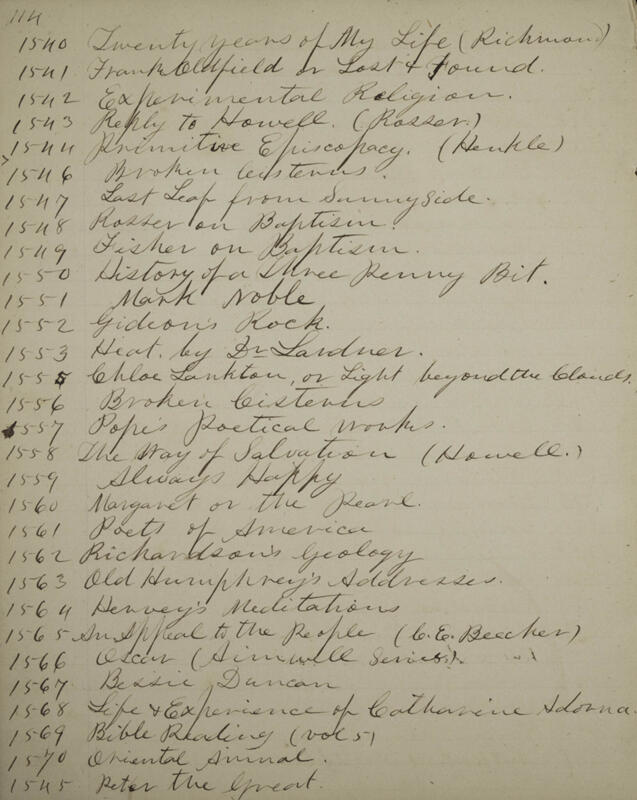 114
1540 Twenty years of My Life (Richmond)
1541 Frank Oldfield or Lost & Found.
1542 Experimental Religion.
1543 Reply to Howell. (Rosser.)
1544 Primitive Episcopacy. (Henkle)
1546 Broken Cisterns.
1547 Last Leaf from Sunny Side.
1548 Rosser on Baptism.
1549 Fisher on Baptism.
1550 History of a Three Penny Bit.
1551 Mark Noble
1552 Gideon's Rock.
1553 Heat. by Dr Lardner.
1555 Chloe Lankton, or Light beyond the Clouds.
1556 Broken Cisterns
1557 Pope's Poetical Works.
1558 The Way of Salvation (Howell.)
1559 Always Happy
1560 Margaret or the Pearl.
1561 Poets of America
1562 Richardson's Geology
1563 Old Humphrey's Addresses.
1564 Hervey's Meditations
1565 An Appeal to the People (C.E. Beecher)
1566 Oscar (Aimwell Series).
1567 Bessie Duncan
1568 Life & Experience of Catharine Adorna.
1569 Bible Reading (vol 5)
1570 Oriental Annual.
1545 Peter the Great.